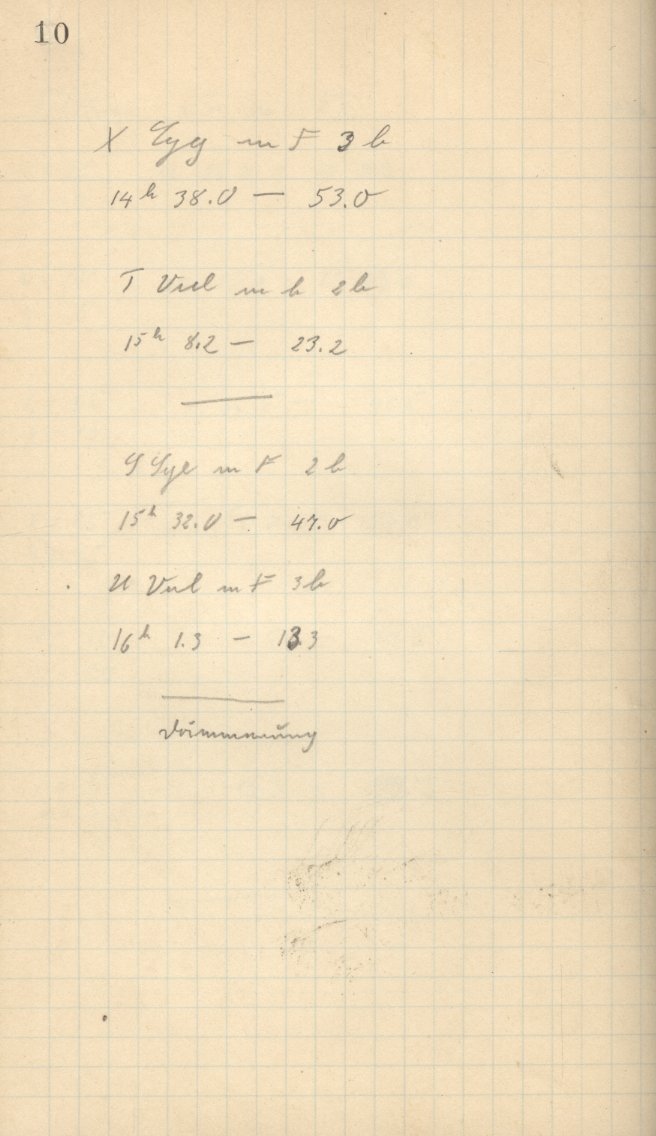 10
X Cyg m F 3 b
14h 38.0 — 53.0
T Vul m b 2b
15h 8.2 — 23.2
S Sge m F 2b
15h 32.0 — 47.0
U Vul m F 3b
16h 1.3 — 13.3
Dämmerung